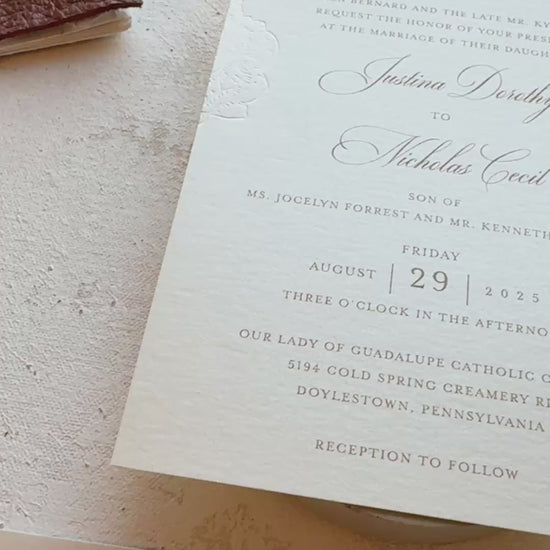 BERNARD AND THE LATE MR.
REQUEST THE HONOR OF YOUR
AT THE MARRIAGE OF THEIR
Justina Dorothy
TO
Nicholas Cecil
SON OF
MS. JOCELYN FORREST AND MR. KENNETH
FRIDAY
AUGUST | 29 | 2025
THREE O'CLOCK IN THE
OUR LADY OF GUADALUPE CATHOLIC
5194 COLD SPRING CREAMERY
DOYLESTOWN, PENNSYLVANIA
RECEPTION TO FOLLOW